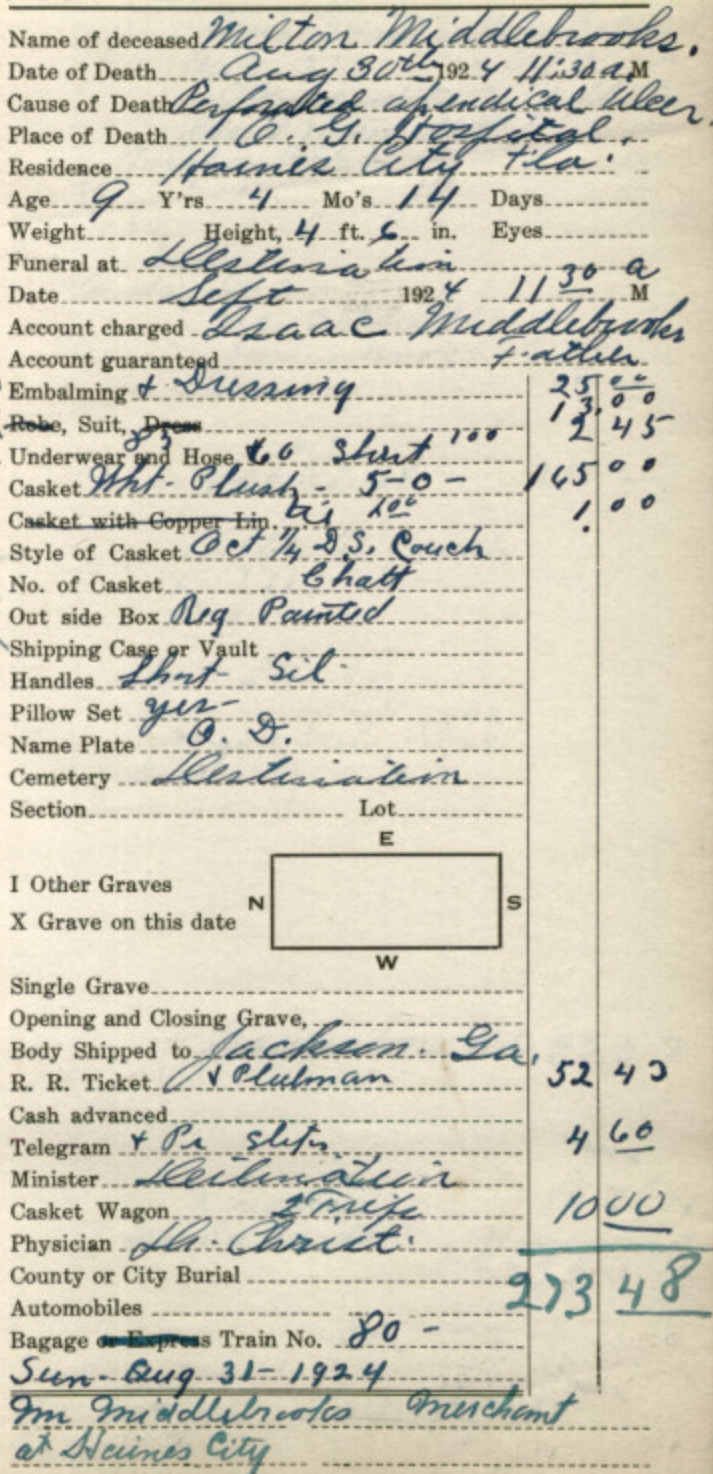 Name of deceased Milton Middlebrooks.
Date of Death Aug 30th 1924 11:30 a M
Cause of Death Perforated apendical ulcer.
Place of Death O. G. Hospital.
Residence Haines City Fla.
Age 9 Y'rs 4 Mo's 14 Days
Weight Height, 4 ft. 6 in. Eyes
Funeral at Destination
Date Sept 1924 11 30 a M
Account charged Isaac Middlebrooks
Account guaranteed Father
Embalming & Dressing 25 00
Robe, Suit, Dress 13.00
Underwear and Hose 85 60 Shirt 1 00 2 45
Casket Wht. Plush - 5-0- 165 00
Casket with Copper Lin. 1.00
Style of Casket Oct 1/4 D.S. Couch
No. of Casket Chatt
Out side Box Reg Painted
Shipping Case or Vault
Handles Short Sil
Pillow Set yes-
Name Plate O. D.
Cemetery Destination
Section Lot
E
I Other Graves
N S
X Grave on this date
W
Single Grave
Opening and Closing Grave,
Body Shipped to Jackson. Ga.
R. R. Ticket & Plulman 52 43
Cash advanced
Telegram & Pr Slips 4 60
Minister Destination
Casket Wagon 2 Trips 10 00
Physician Dr. Christ.
County or City Burial 273 48
Automobiles
Bagage or Express Train No. 80 -
Sun- Aug 31- 1924
Middlebrooks Merchant
at Haines City